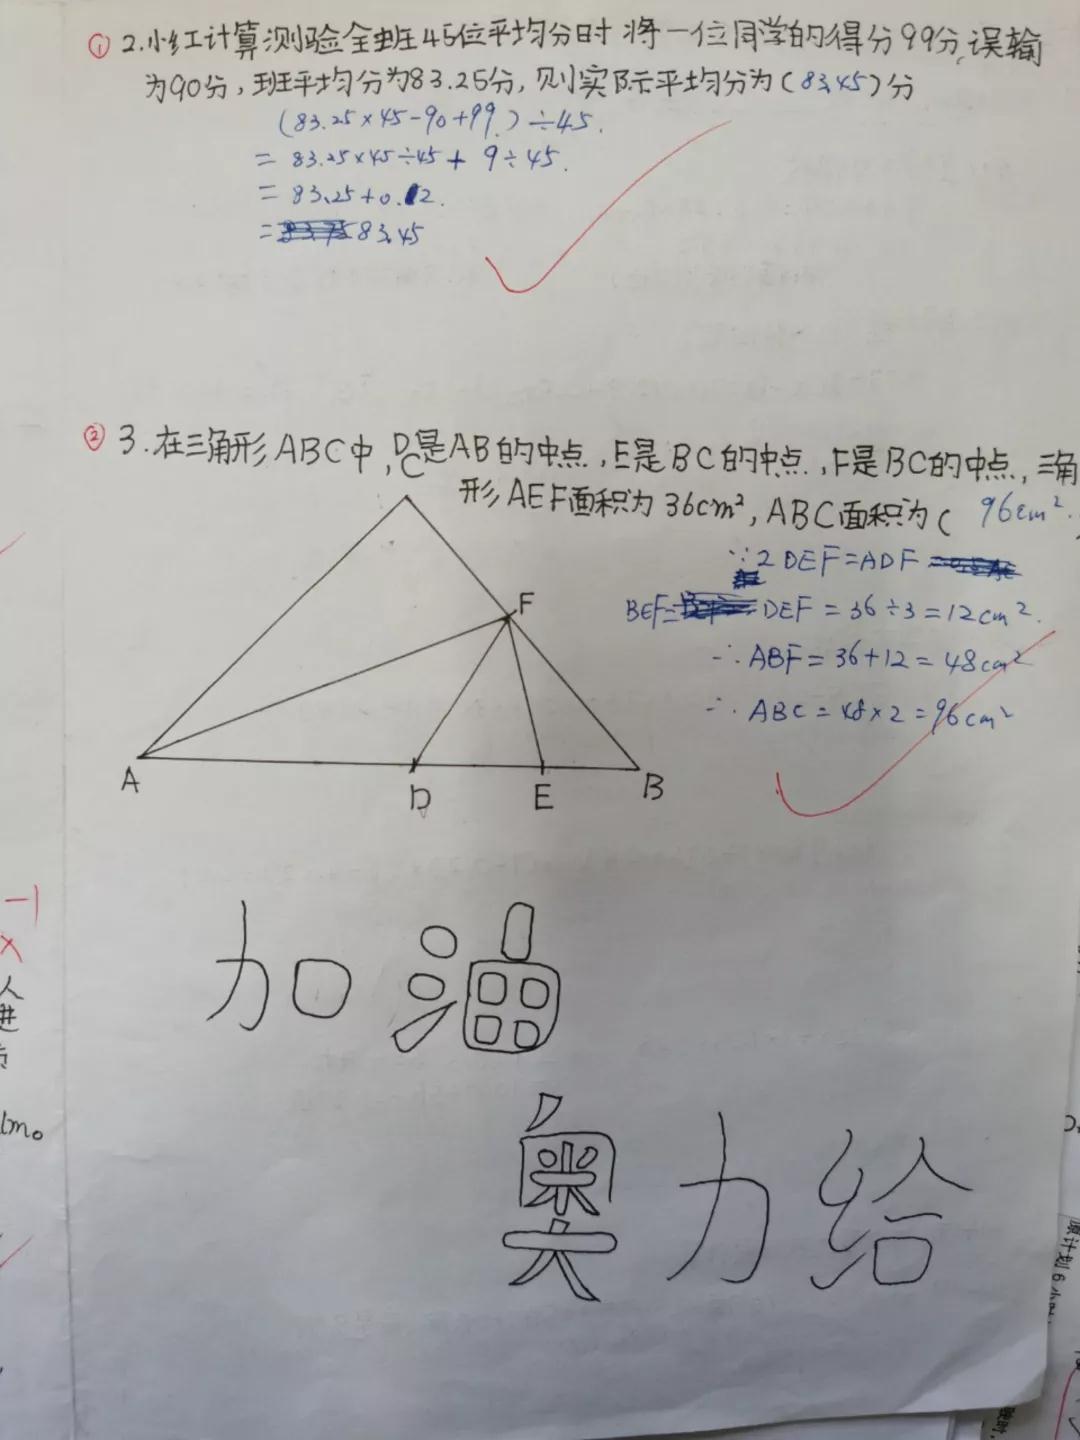 ① 2.小红计算测验全班45位平均分时将一位同学的得分99分,误输
为90分,班平均分为83.25分,则实际平均分为(83.45)分
(83.25×45-90+99)÷45.
=83.25×45÷45+9÷45.
=83.25+0.2.
=83.45
② 3.在三角形ABC中,D是AB的中点,E是BC的中点,F是BC的中点,三角
形AEF面积为36cm²,ABC面积为(96cm².
C
∵2DEF=ADF
F
BEF=DEF=36÷3=12cm².
∴ABF=36+12=48cm²
∴ABC=48×2=96cm²
A
D
E
B
加油
奥力给
-1
×
人
进
lm。
原计划6小时,